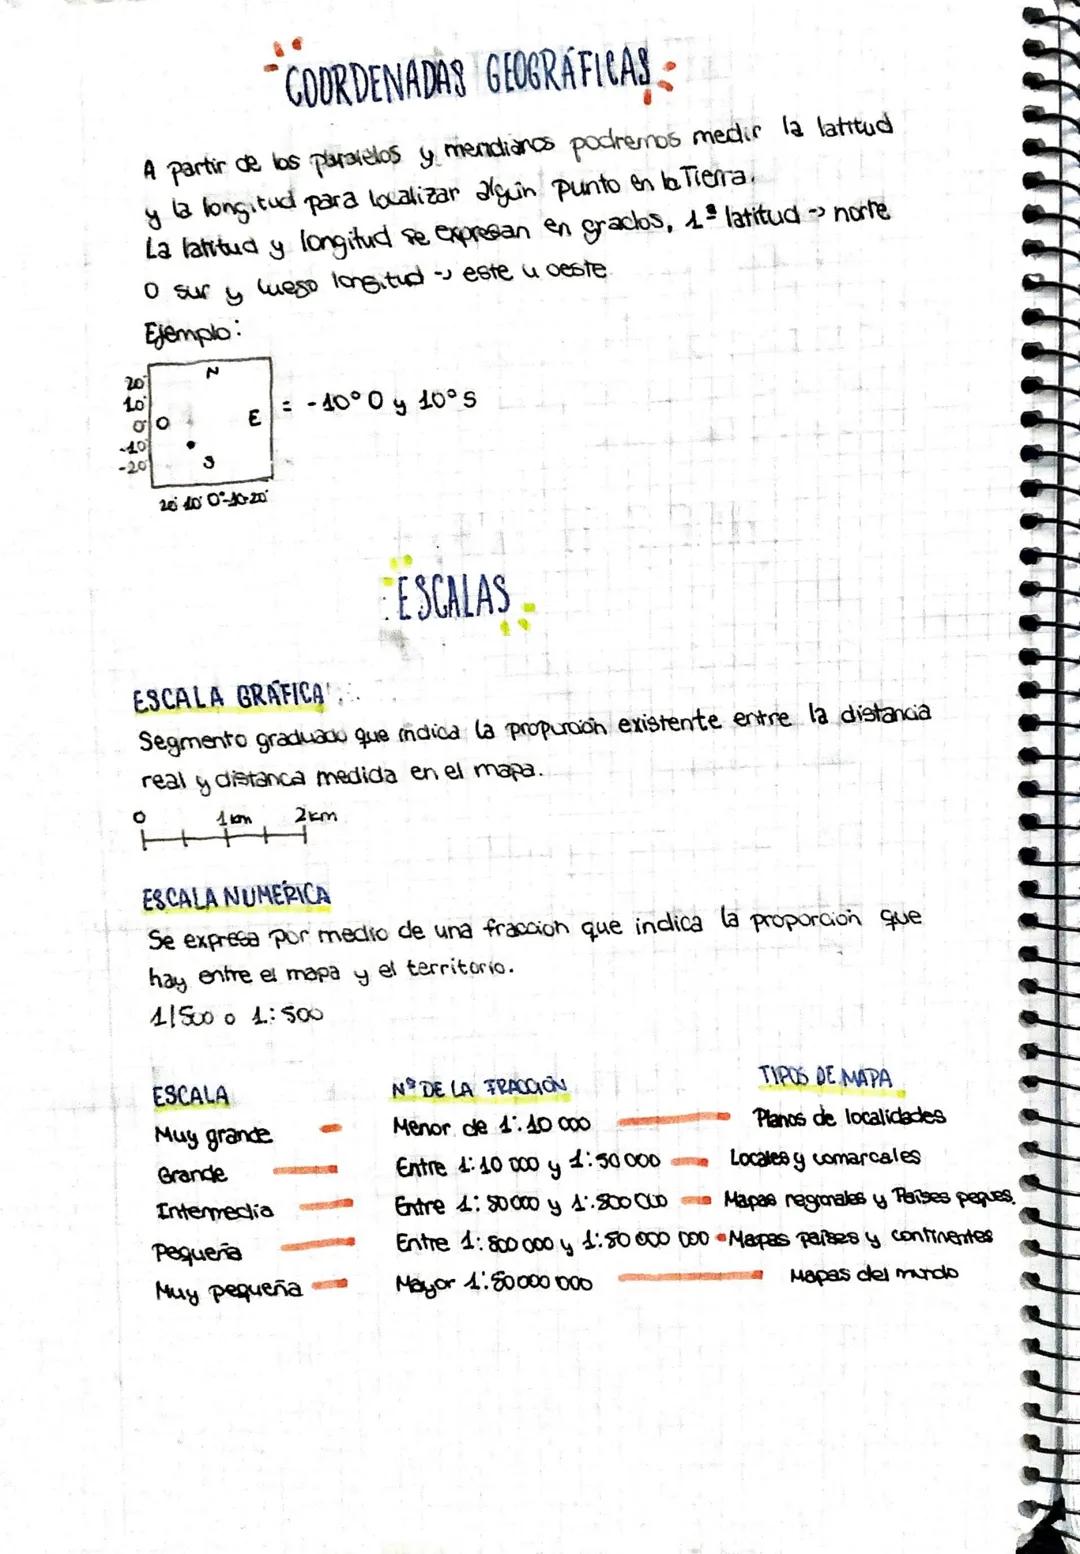 COORDENADAS GEOGRÁFICAS
A partir de los paralelos y meridianos podremos medir la latitud
y la longitud para localizar algún punto en la Tierra.
La latitud y longitud se expresan en grados, 1º latitud -> norte
o sur y luego longitud -> este u oeste.
Ejemplo:
N
20°
10°
0°
O
E
-10°
-20°
S
20° 10° 0° -10 -20°
= -10° O y 10° S
ESCALAS
ESCALA GRÁFICA
Segmento graduado que indica la proporción existente entre la distancia
real y distanca medida en el mapa.
0 1 km 2 km
ESCALA NUMÉRICA
Se expresa por medio de una fracción que indica la proporción que
hay entre el mapa y el territorio.
1/500 o 1:500
ESCALA Nº DE LA FRACCIÓN TIPOS DE MAPA
Muy grande Menor de 1:10 000 Planos de localidades
Grande Entre 1:10 000 y 1:50 000 Locales y comarcales
Intermedia Entre 1:50 000 y 1:500 000 Mapas regionales y Países peques.
Pequeña Entre 1:500 000 y 1:50 000 000 Mapas países y continentes
Muy pequeña Mayor 1:50 000 000 Mapas del mundo